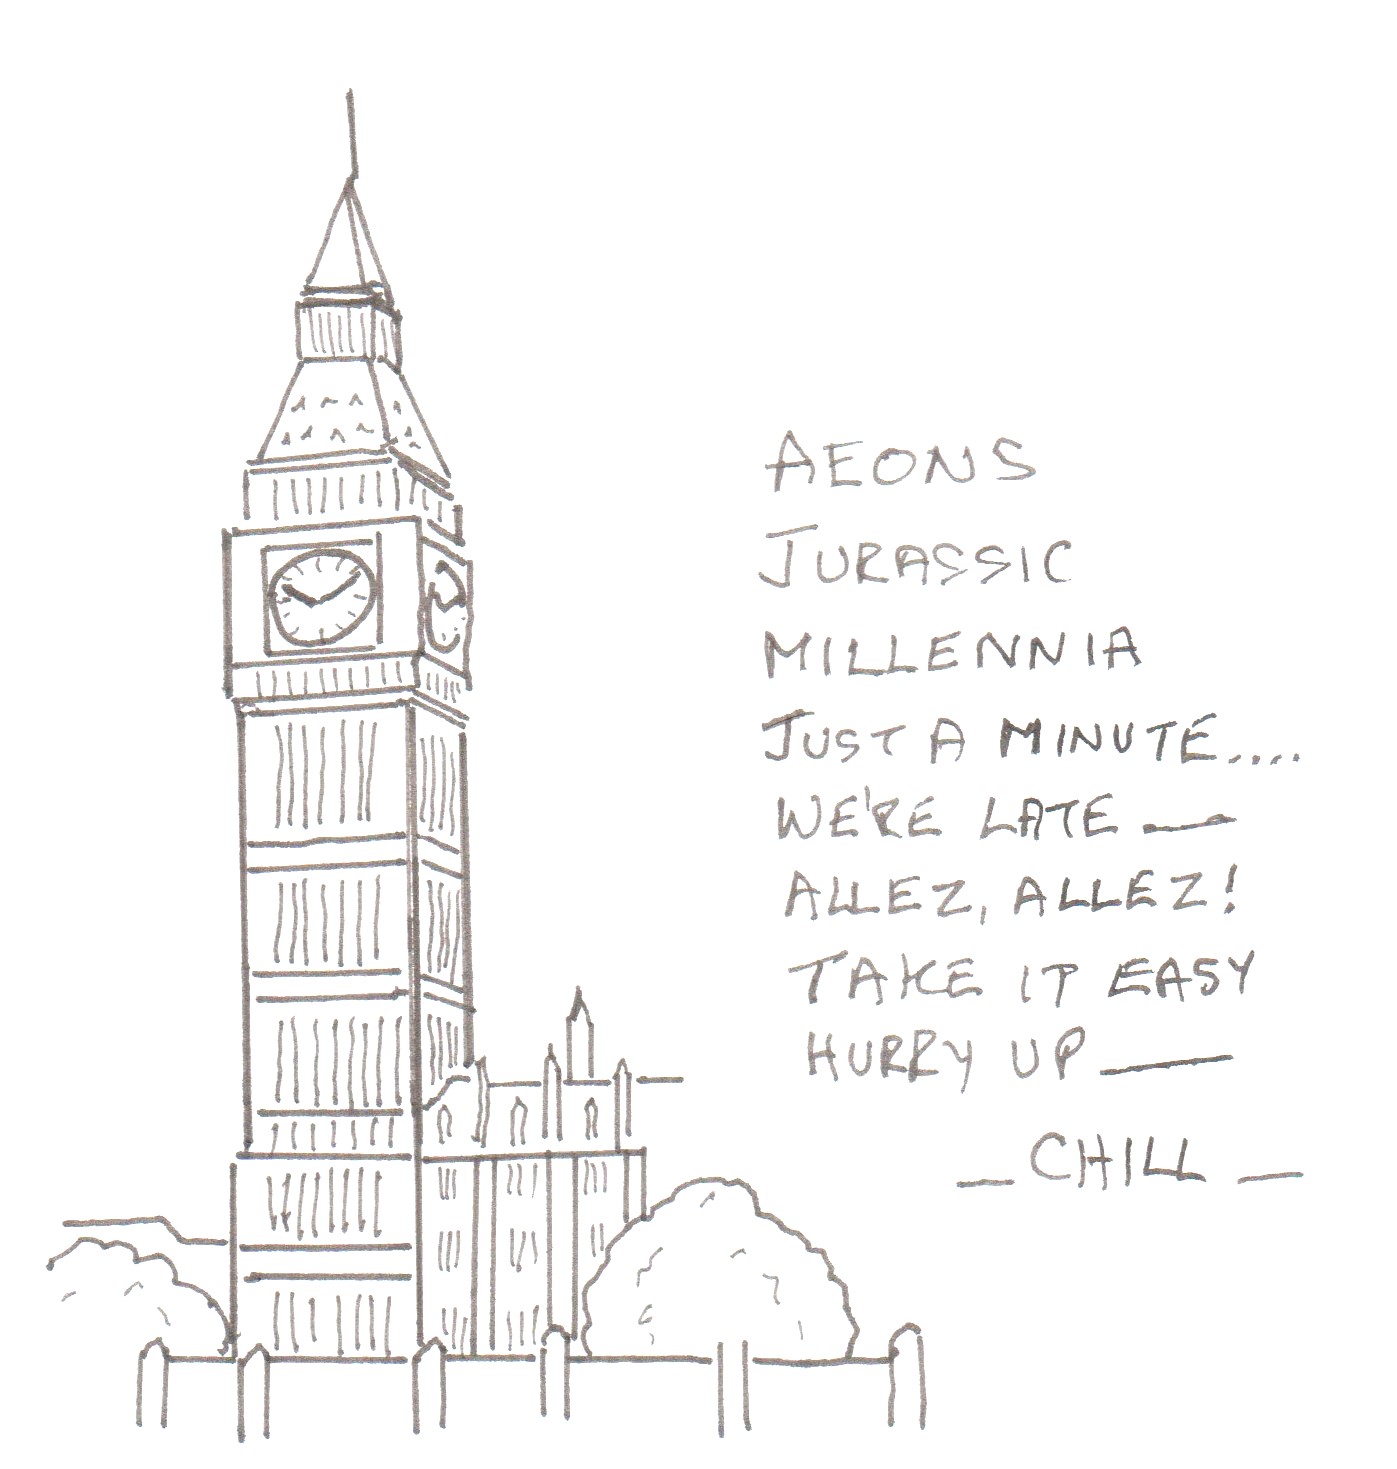 AEONS
JURASSIC
MILLENNIA
JUST A MINUTE....
WE'RE LATE —
ALLEZ, ALLEZ!
TAKE IT EASY
HURRY UP —
— CHILL —